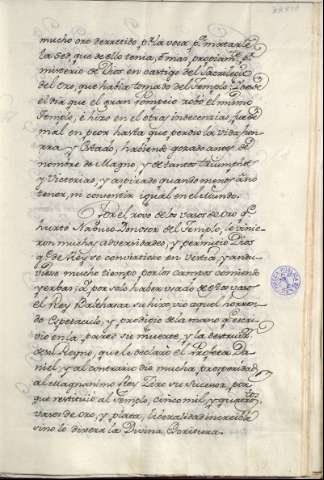 mucho oro derretido p.r la voca, p.a matarle
la sed, que de ello tenia, ô mas propiam.te p.r
misterio de Dios en castigo del Sacrilegio
del oro, que havia tomado del Templo, y desde
el dia que el gran Pompeio robó el mismo
Templo, é hizo en el otras indecencias, fue de
mal en peor hasta que perdio la vida, hon-
rra, y Estado, haviendo gozado antes el
nombre de Magno, y de tantos triumphos
y Victorias, y aspirado quando menos âno
tener, ni consentir igual en el Mundo.
Por el rovo de los vasos de Oro q.e
hurtó Nabuco Donosor del Templo, le vinie-
ron muchas adversidades, y permitio Dios
q.e de Rey se conviertiese en Vestia, y andu-
viese mucho tiempo por los campos comiendo
yerbas, y por solo haber usado de estos vasos
el Rey Balthasar su hixo vio aquel horren-
do Espectaculo, y prodigio de la mano q.e escri-
vio en la pared su muerte, y la destruic.n
de su Reyno, que le declaró el Profeta Da-
niel, y al contrario dio mucha prosperidad
al Magnanimo Rey Ziro su sucesor, por
que restituió al Templo, cinco mil, y quatroz.s
vasos de oro, y plata, liberalidad increible
sino lo dixera la Divina Escritura.